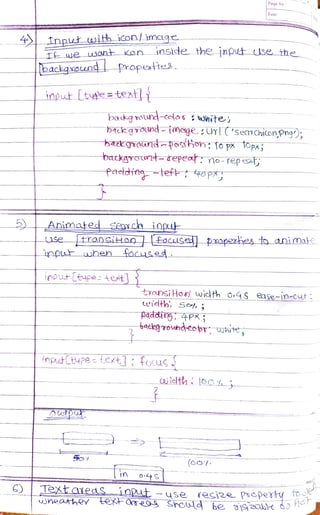 Page No.
Date
4) Input with icon/image
If we want icon inside the input use the
background properties.
input [type=text] {
background-color : white;
background-image : url ('searchicon.png');
background-position: 10px 10px;
background-repeat: no-repeat;
padding-left : 40px;
}
5) Animated search input
use transition focused properties to animate
input when focused.
input[type=text] {
transition: width 0.4s ease-in-out;
width: 50%;
padding: 4px;
background-color: white;
}
input[type=text] : focus {
width : 100%;
}
output
50% => 100%
in 0.4s
6) Textareas input - use resize property to
textareas should be